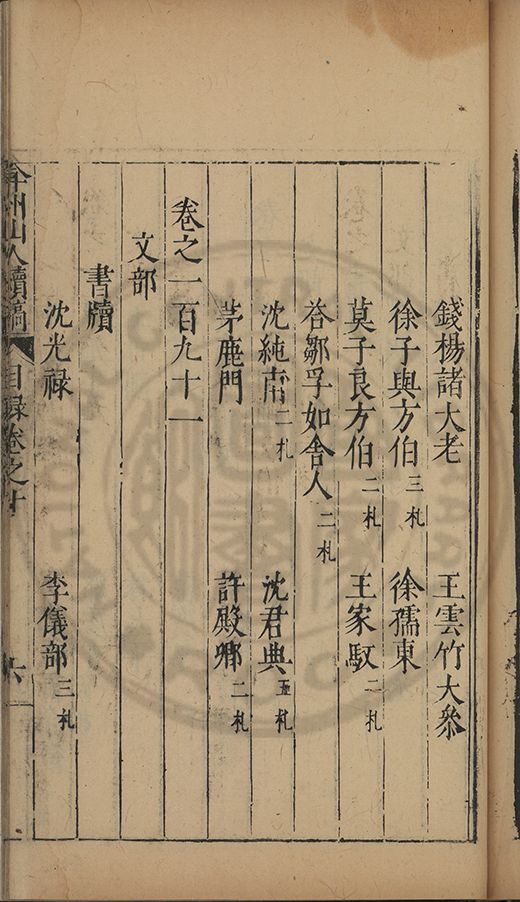 錢楊諸大老 王雲竹大叅
徐子與方伯三札 徐孺東
莫子良方伯二札 王家馭二札
荅鄒孚如舍人二札
沈純甫二札 沈君典五札
茅鹿門 許殿卿二札
卷之一百九十一
文部
書牘
沈光禄 李儀部三札
弇州山人續稿 目録卷之十 六